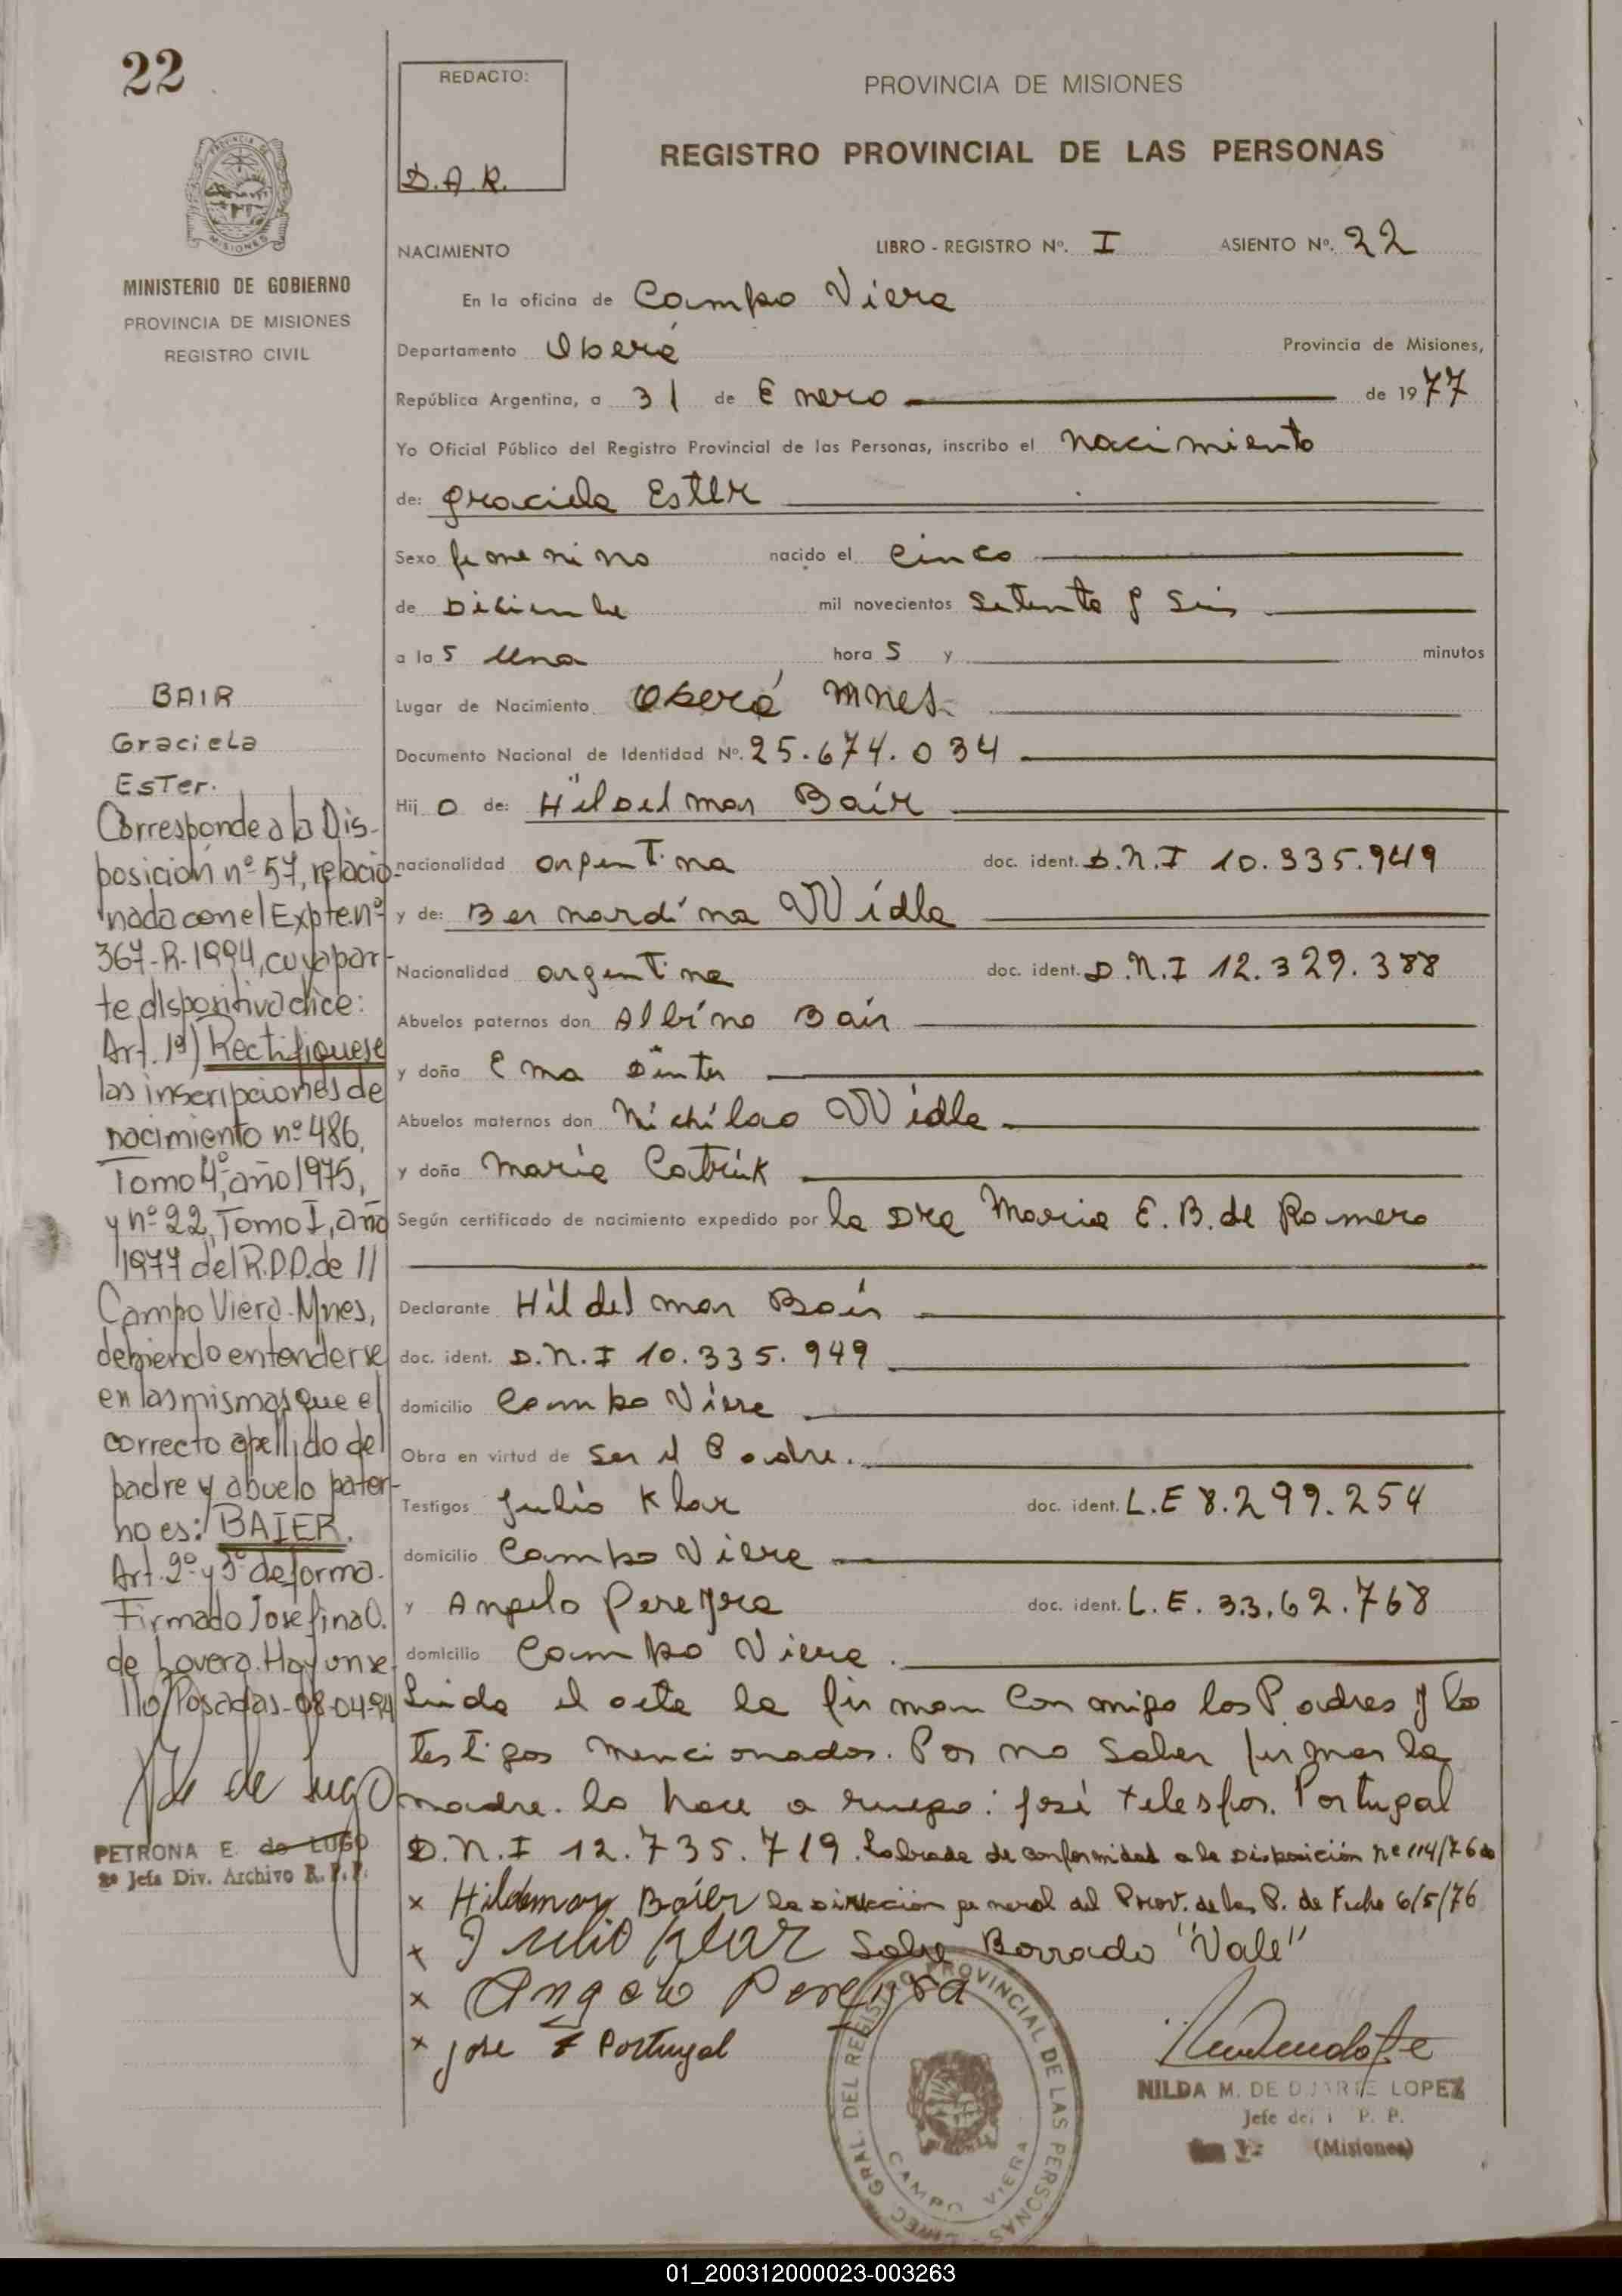 22
REDACTO:
D.A.R.
MINISTERIO DE GOBIERNO
PROVINCIA DE MISIONES
REGISTRO CIVIL
PROVINCIA DE MISIONES
REGISTRO PROVINCIAL DE LAS PERSONAS
NACIMIENTO LIBRO - REGISTRO Nº. I ASIENTO Nº. 22
En la oficina de Campo Viera
Departamento Oberá Provincia de Misiones,
República Argentina, a 31 de Enero de 1977
Yo Oficial Público del Registro Provincial de las Personas, inscribo el nacimiento
de: Graciela Ester
Sexo femenino nacido el cinco
de Diciembre mil novecientos setenta y seis
a la s una hora s y minutos
Lugar de Nacimiento Oberá Mnes.
Documento Nacional de Identidad Nº. 25.674.034
Hij o de: Hildelmar Bair
nacionalidad argentina doc. ident. D.N.I 10.335.949
y de: Bernardina Widla
Nacionalidad argentina doc. ident. D.N.I 12.329.388
Abuelos paternos don Albino Bair
y doña Ema Dinter
Abuelos maternos don Nichilao Widla
y doña Maria
Según certificado de nacimiento expedido por la Dra Maria E.B. de Romero
Declarante Hildelmar Bair
doc. ident. D.N.I 10.335.949
domicilio Campo Viera
Obra en virtud de ser el Padre.
Testigos Julio Klar doc. ident. L.E 8.299.254
domicilio Campo Viera
y Angelo Pereyra doc. ident. L.E. 33.62.768
domicilio Campo Viera.
Leida el acta la firman conmigo los Padres y lo
testigos mencionados. Por no saber firmar la
madre. lo hace a ruego: José Telesfor. Portugal
D.N.I 12.735.719. Labrada de conformidad a la Disposición nº 114/76 de
x Hildemar Baier la Dirección general del Prov. de las P. de Fecha 6/5/76
x Julio Klar Sobre Borrado "Vale"
x Angelo Pereyra
x Jose T Portugal
BAIR
Graciela
Ester.
Corresponde a la Dis-
posición nº 57, relacio-
nada con el Expte. nº
367-R-1994, cuya par-
te dispositiva dice:
Art. 1º) Rectifiquese
las inscripciones de
nacimiento nº 486,
Tomo 4º, año 1975,
y nº 22, Tomo I, año
1977 del R.P.P. de //
Campo Viera-Mnes,
debiendo entenderse
en las mismas que el
correcto apellido del
padre y abuelo pater-
no es: BAIER.
Art. 2º y 3º de forma.
Firmado Josefina O.
de Lovera. Hay un se-
llo/Posadas-08-04-94
de Lugo
PETRONA E. de LUGO
2ª Jefa Div. Archivo R.P.P.
DIREC. GRAL. DEL REGISTRO PROVINCIAL DE LAS PERSONAS
CAMPO VIERA
NILDA M. DE DUARTE LOPEZ
Jefe del P. P.
(Misiones)
01_200312000023-003263